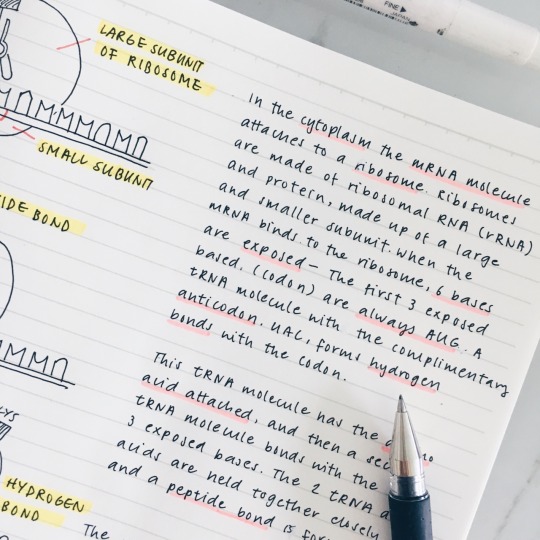 FINE
JAPAN
LARGE SUBUNIT
OF RIBOSOME
SMALL SUBUNIT
IDE BOND
LYS
HYDROGEN
BOND
The
In the cytoplasm the mRNA molecule
attaches to a ribosome. Ribosomes
are made of ribosomal RNA (rRNA)
and protein, made up of a large
and smaller subunit. When the
mRNA binds to the ribosome, 6 bases
are exposed – The first 3 exposed
based, (codon) are always AUG. A
tRNA molecule with the complimentary
anticodon, UAC, forms hydrogen
bonds with the codon.
This tRNA molecule has the
acid attached, and then a sec
tRNA molecule bonds with the
3 exposed bases. The 2 tRNA
acids are held together closely
and a peptide bond is for